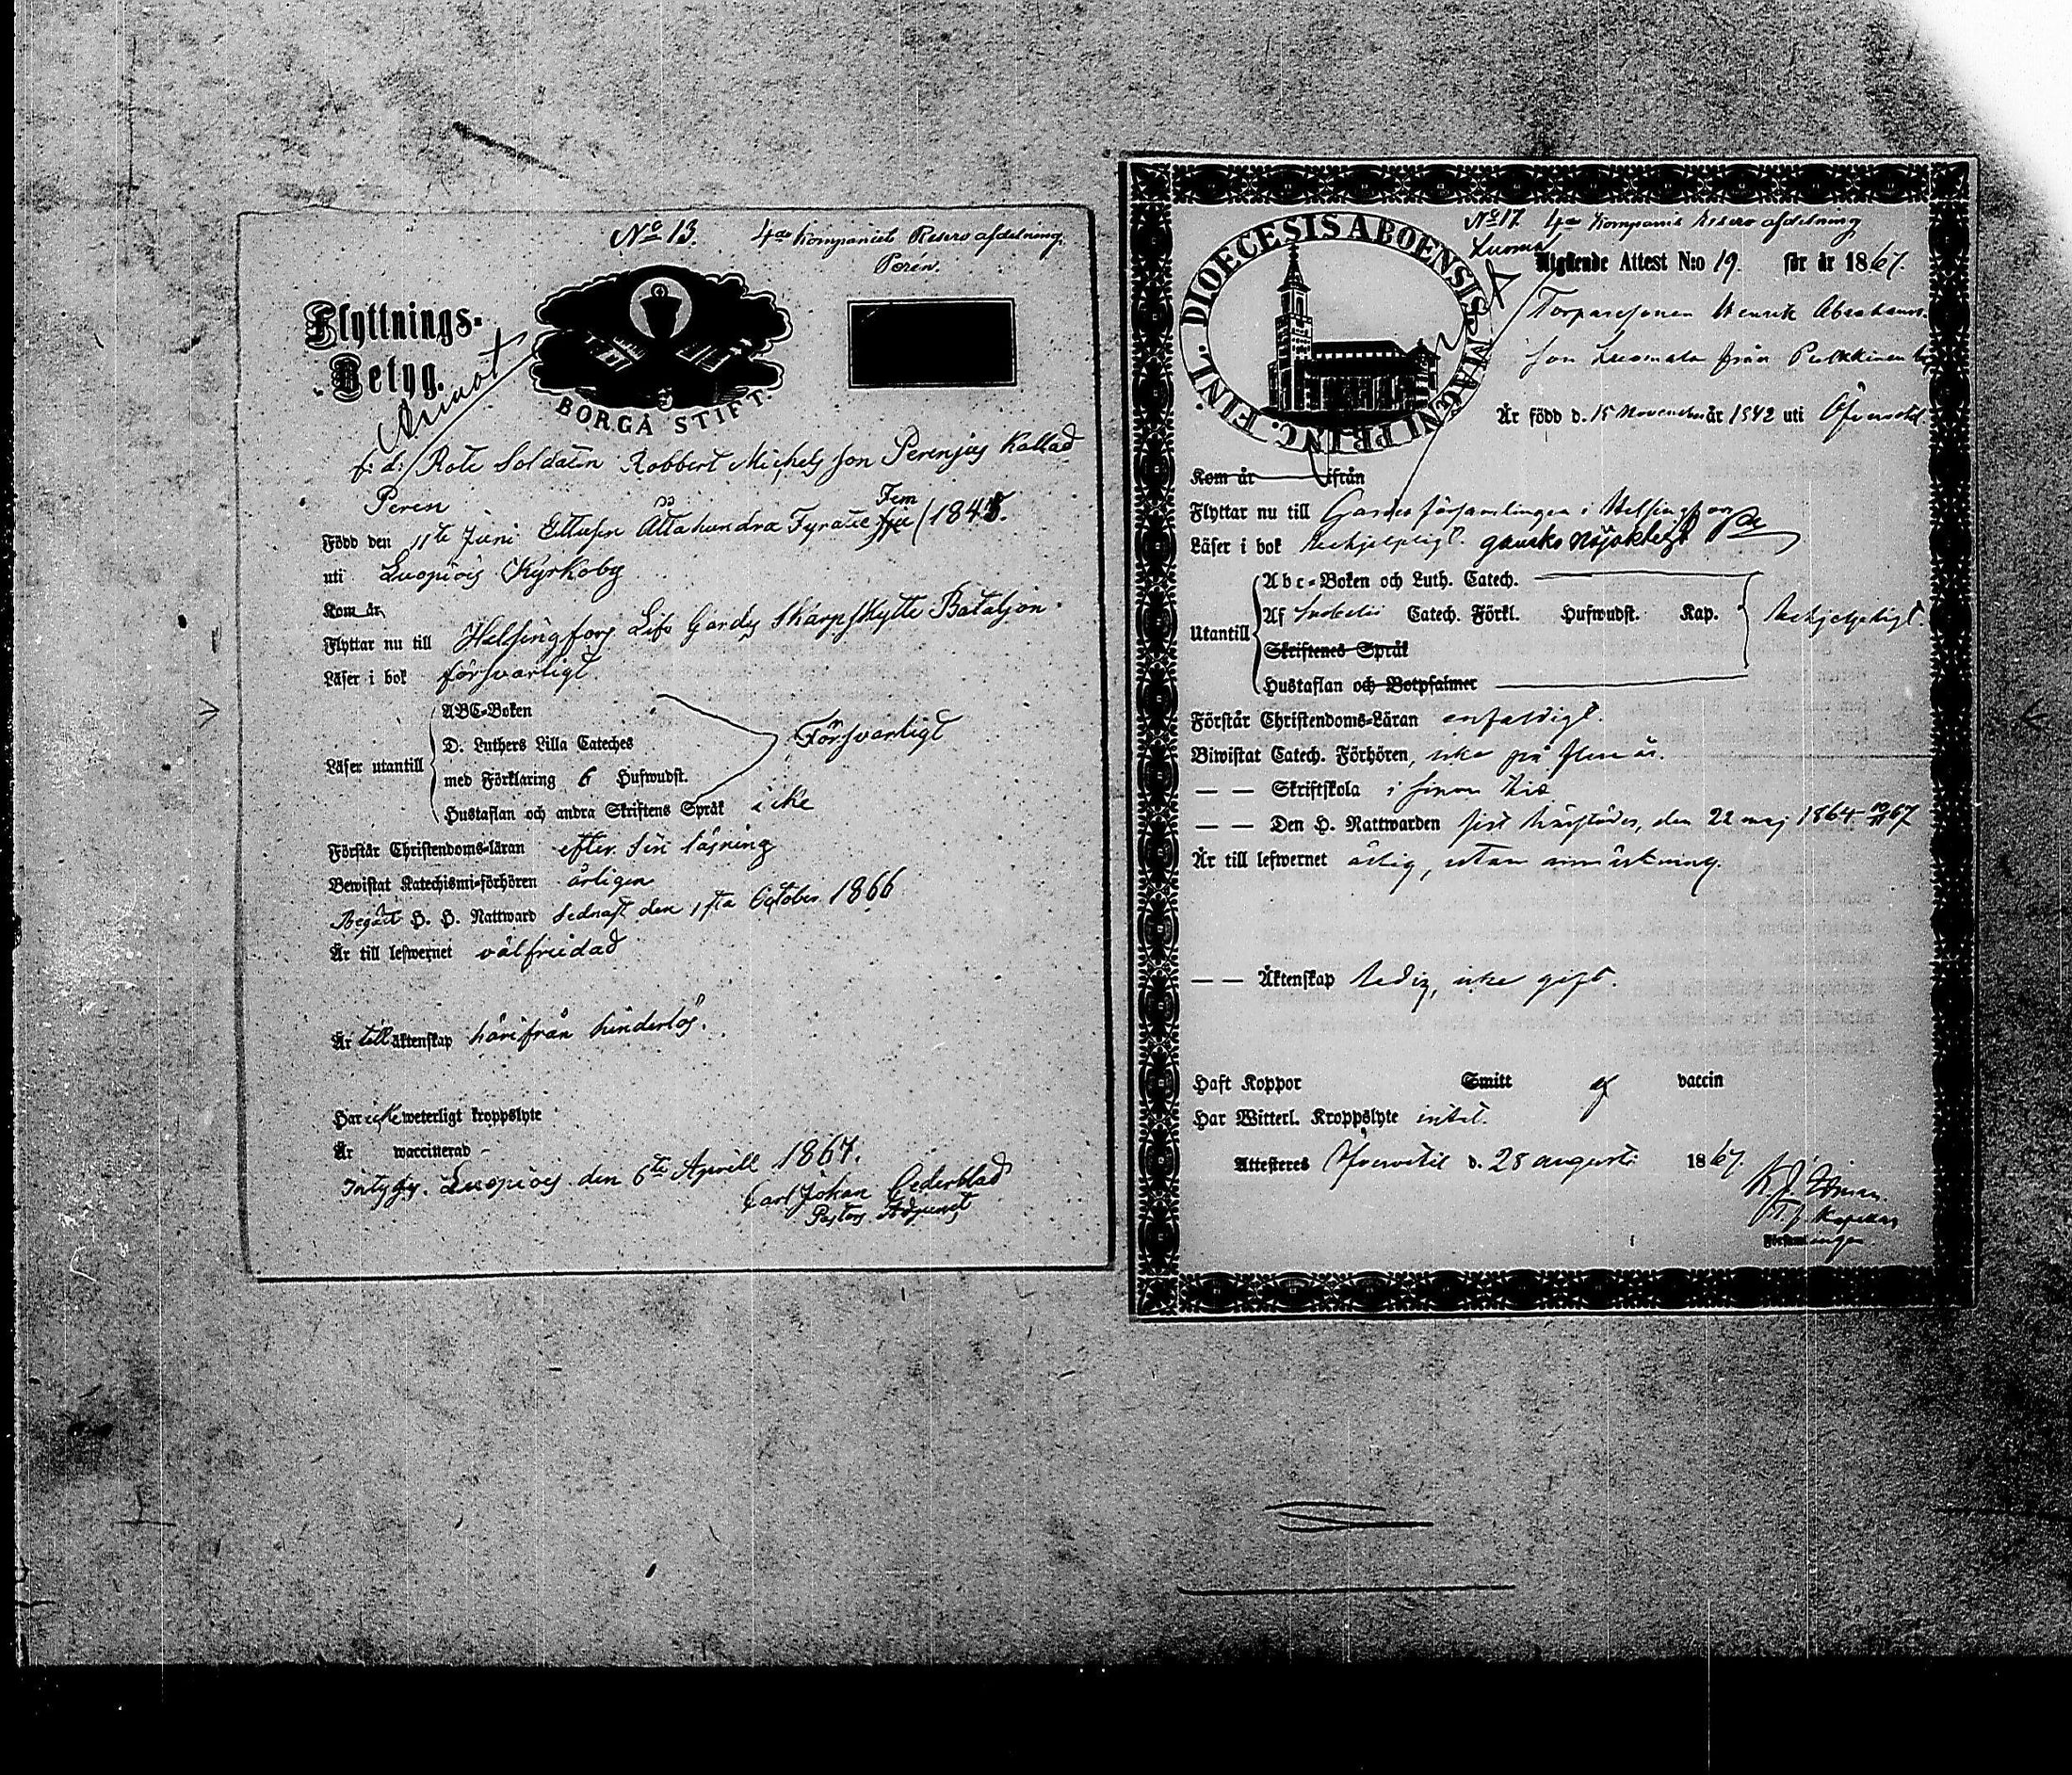 No 13. 4de Kompaniets Reserv afdelning.
Perén.
Flyttnings-
Betyg.
BORGÅ STIFT.
f: d: Rote Soldaten Robbert Michelsson Perenjus Kallad
Peren
Född den 11te Juni Ettusen Åttahundra Fyratie Fem (1845.
uti Luopiois Kyrkoby
Kom år
Flyttar nu till Helsingfors Lif Gardes Skarpskytte Bataljon.
Läser i bok försvarligt.
Läser utantill
ABC-Boken
D. Luthers Lilla Cateches
med Förklaring 6 Hufwudst.
Försvarligt
Hustaflan och andra Skriftens Språk icke
Förstår Christendoms-läran efter sin läsning
Bewistat Katechismi-förhören årligen
Begått H. H. Nattward sednast den 1sta October 1866
Är till lefwernet välfrejdad
Är till äktenskap härifrån hinderlös.
Har icke weterligt kroppslyte
Är waccinerad
Intygar. Luopiois den 6te Aprill 1867.
Carl Johan Cederblad
Pastors Adjunct
No 17. 4de Kompanis Reserv afdelning
DIOECESIS ABOENSIS MAGNI PRINC. FINL.
Utgående Attest N:o 19. för år 1867.
Torparesonen Henrik Abrahams-
son Luomala från Pulkkinen
Är född d. 15 November år 1842 uti
Kom år ifrån
Flyttar nu till Gardes församlingen i Helsingfors
Läser i bok ganska nöjaktigt
Utantill
Abc-Boken och Luth. Catech.
Af Catech. Förkl. Hufwudst. Kap.
Skriftenes Språk
Hustaflan och Botpsalmer
Förstår Christendoms-Läran enfaldigt.
Biwistat Catech. Förhören, icke på flere år.
— — Skriftskola i sinom tid
— — Den H. Nattwarden sist härstädes, den 22 maj 1864
Är till lefwernet ärlig, utan anmärkning.
— — Äktenskap ledig, icke gift.
Haft Koppor Smitt af vaccin
Har Witterl. Kroppslyte intet.
Attesteres d. 28 augusti 1867.
T. f. Kapellan